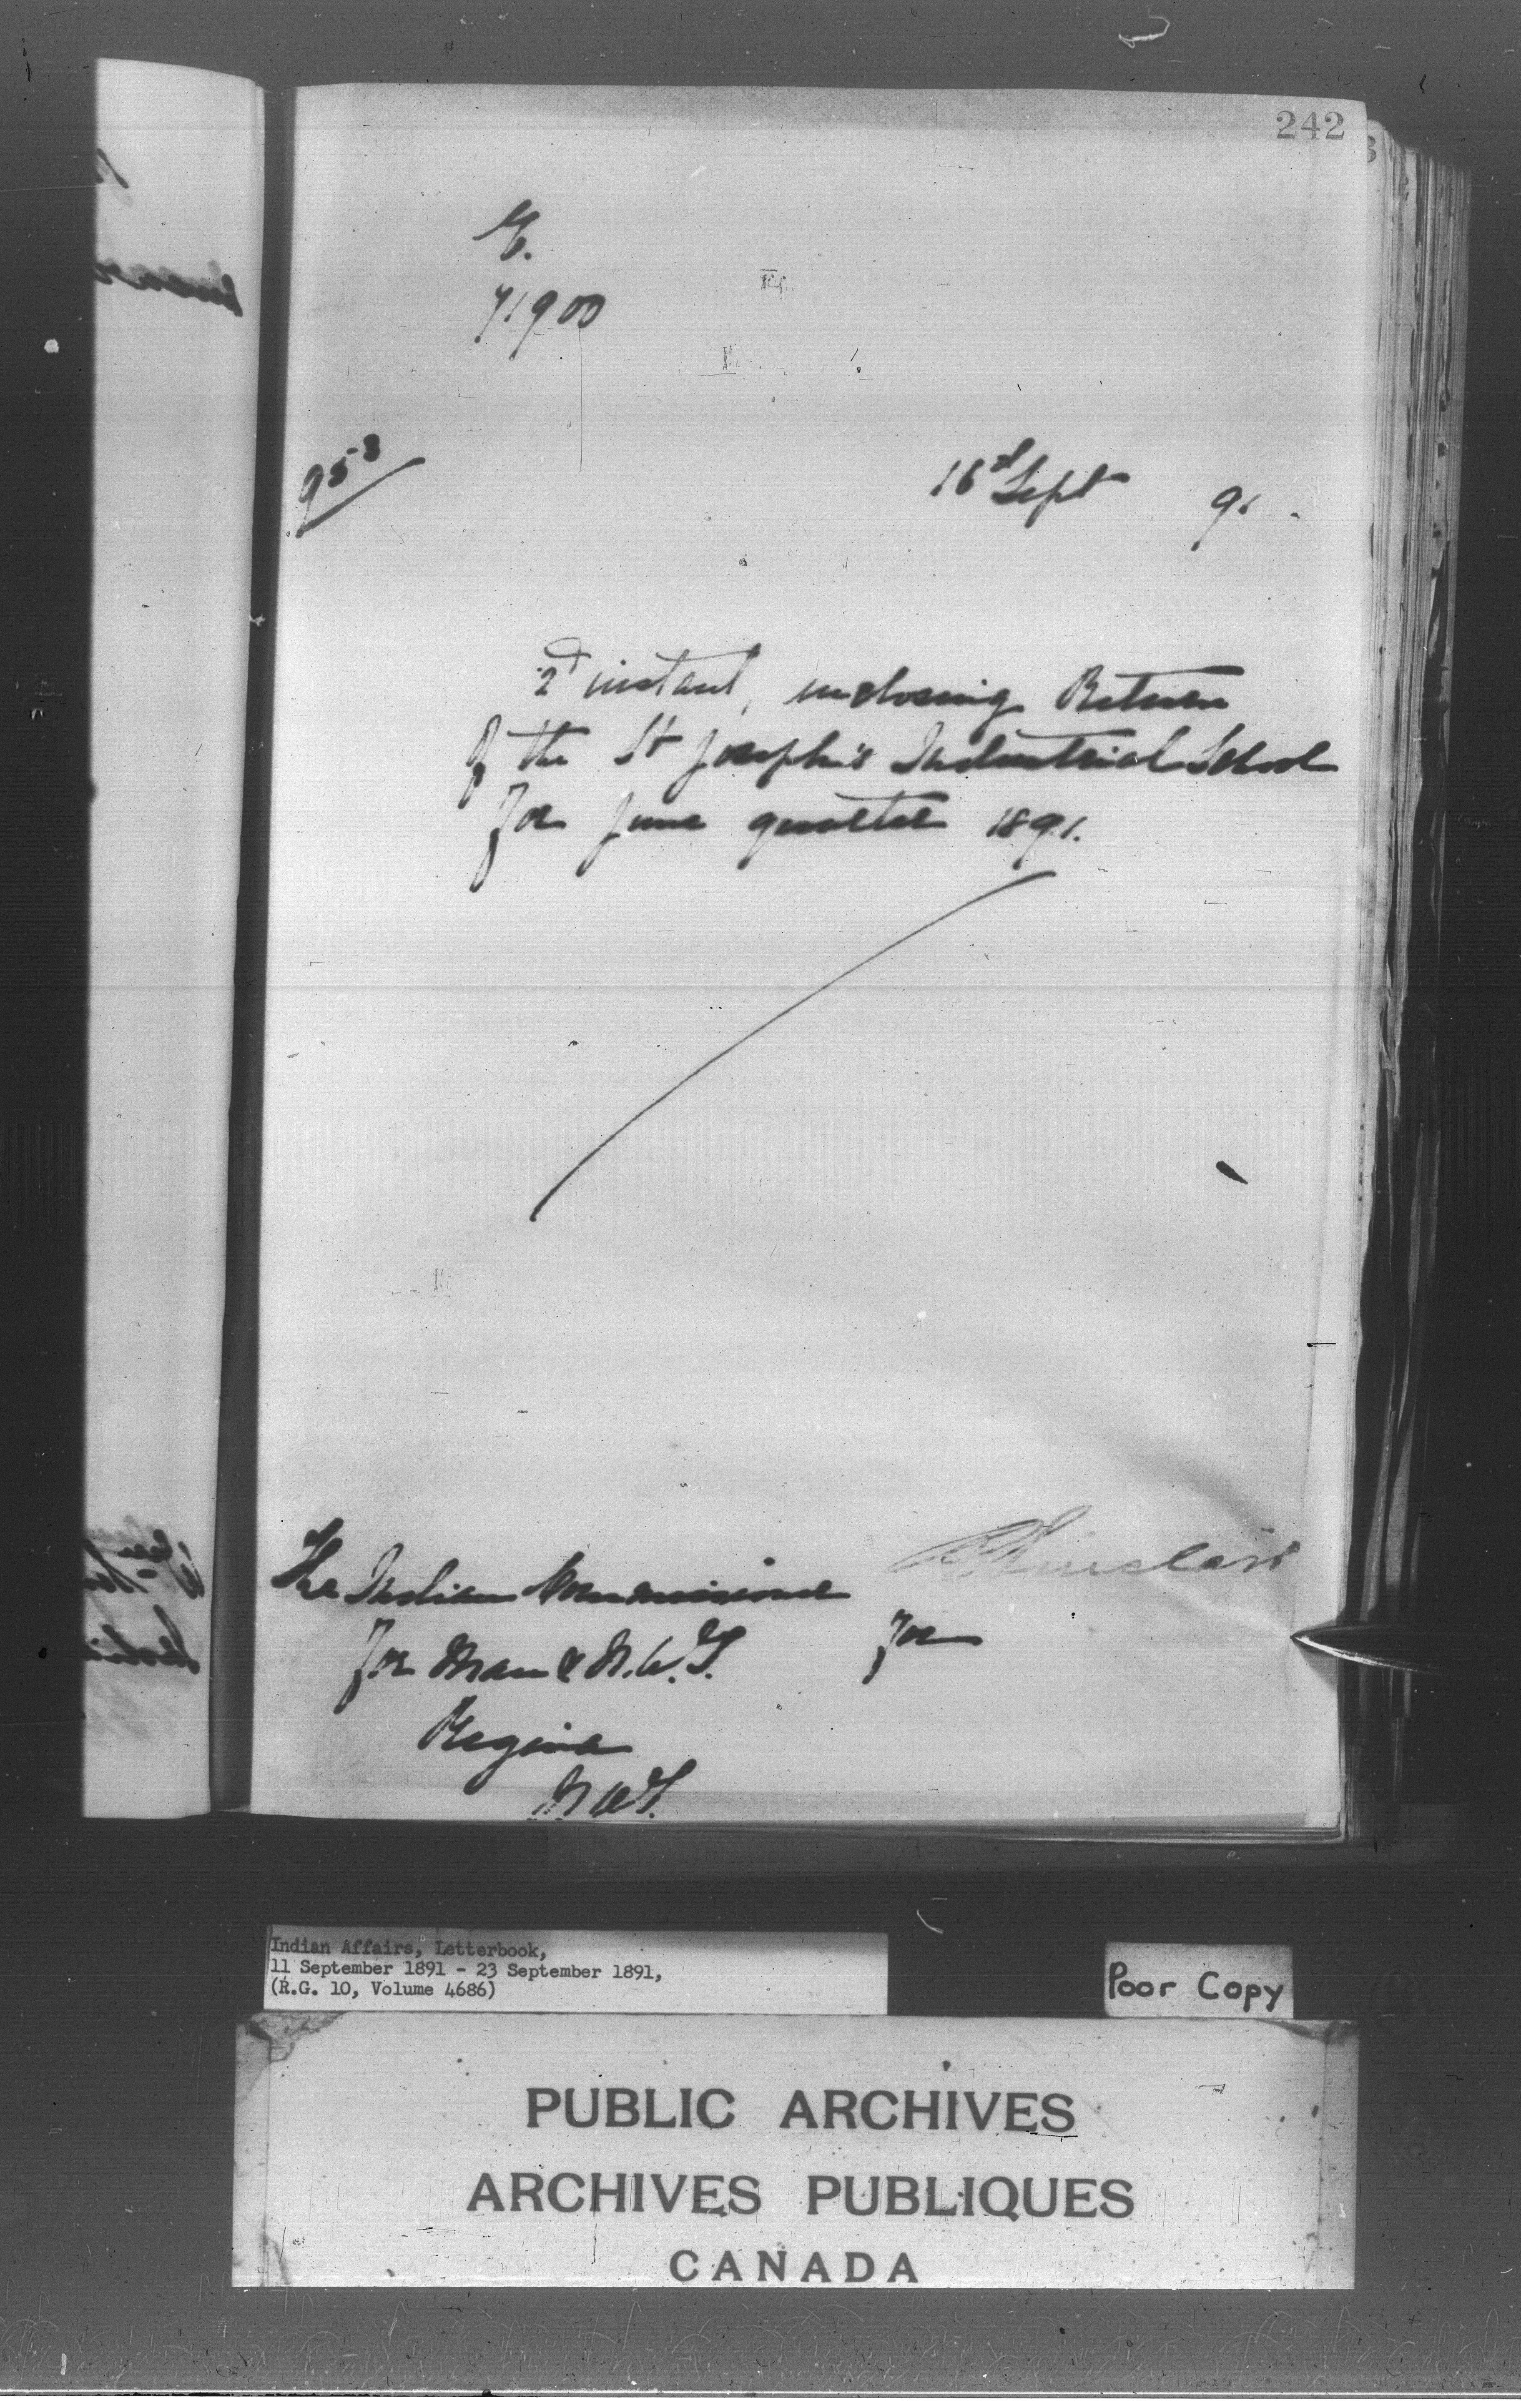 242
71900
958
16th Sept 91.
2d instant, inclosing Return
of the St Joseph's Industrial School
for June quarter 1891.
The Indian Commissioner
for Man & N.W.T.
for
Regina
N.W.T.
Indian Affairs, Letterbook,
11 September 1891 - 23 September 1891,
(R.G. 10, Volume 4686)
Poor Copy
PUBLIC ARCHIVES
ARCHIVES PUBLIQUES
CANADA